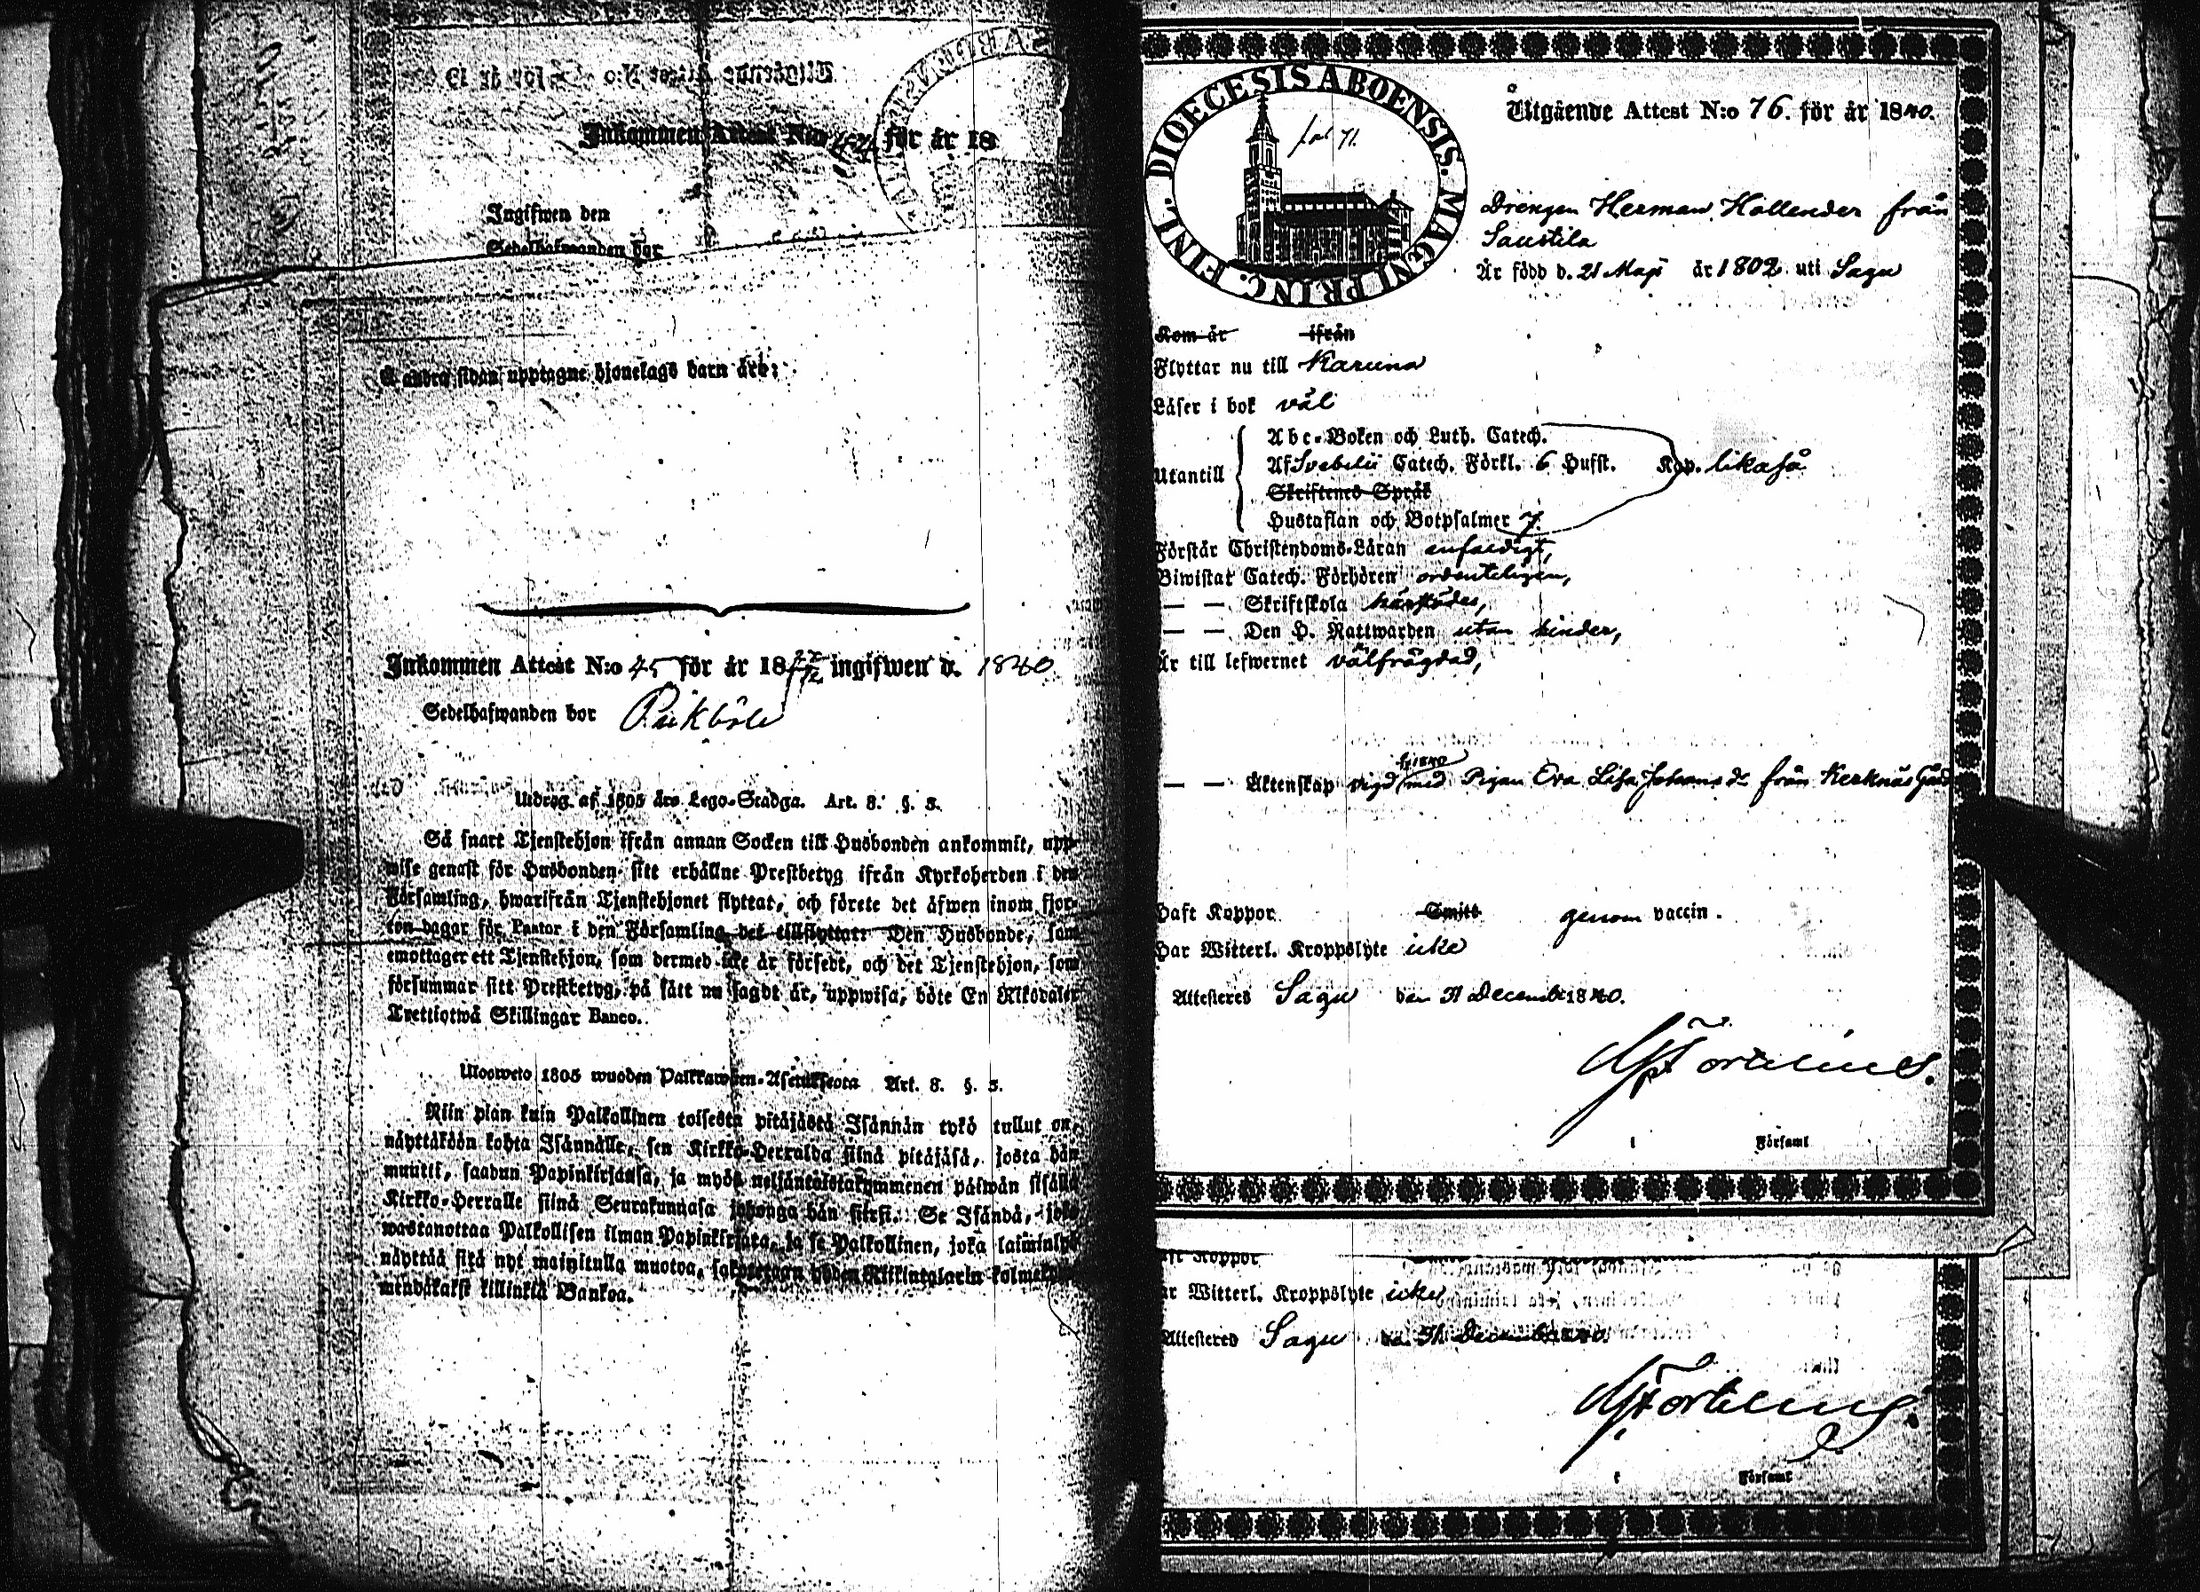 Inkommen Attest N:o 44 för år 18
Ingifwen den
Sedelhafwanden bor
å andra sidan upptagne hjonelags barn äro:
Inkommen Attest N:o 45 för år 18 ingifwen d. 1840
Sedelhafwanden bor
Utdrag af 1805 års Lego-Stadga. Art. 8. §. 3.
Så snart Tjenstehjon ifrån annan Socken till Husbonden ankommit, upp-
wise genast för Husbonden sitt erhållne Prestbetyg ifrån Kyrkoherden i den
Församling, hwarifrån Tjenstehjonet flyttat, och förete det äfwen inom fjor-
ton dagar för Pastor i den Församling det tillflyttat. Den Husbonde, som
emottager ett Tjenstehjon, som dermed icke är försedt, och det Tjenstehjon, som
försummar sitt Prestbetyg, på sätt nu sagdt är, uppwisa, böte En Riksdaler
Trettiotwå Skillingar Banco.
Ulosweto 1805 wuoden Palkkawäen-Asetuksesta Art. 8. §. 3.
Niin pian kuin Palkollinen toisesta pitäjästä Isännän tykö tullut on,
näyttäköön kohta Isännälle, sen Kirkko-Herralda siinä pitäjäsä, josta hän
muutti, saadun Papinkirjansa, ja myös neljäntoistakymmenen päiwän sisällä
Kirkko-Herralle siinä Seurakunnasa johonga hän siirsi. Se Isändä, joka
wastanottaa Palkollisen ilman Papinkirjata, ja se Palkollinen, joka laiminlyö
näyttää sitä nyt mainitulla muotoa, Riikintalarin kolmekym-
mendäkaksi killinkiä Bankoa.
DIOECESIS ABOENSIS. MAGNI PRINC. FINL.
fol 71.
Utgående Attest N:o 76. för år 1840.
Drengen Herman Hollender från
Saustila
Är född d. 21 Maji år 1802 uti Sagu
Kom år ifrån
Flyttar nu till Karuna
Läser i bok väl
Utantill
Abc-Boken och Luth. Catech.
Af Svebelii Catech. Förkl. 6 Hufst. Kap. likaså
Skriftenes Språk
Hustaflan och Botpsalmer 7.
Förstår Christendoms-Läran enfaldigt,
Biwistat Catech. Förhören ordenteligen,
— — Skriftskola
— — Den H. Nattwarden utan hinder,
Är till lefwernet välfrägdad,
1840
— — Äktenskap vigd med Pigan Eva Lisa Johans dr från Kerknäs Gård
Haft Koppor Smitt genom vaccin.
Har Witterl. Kroppslyte icke
Attesteres Sagu den 31 Decemb 1840.
i Församl
Haft Koppor
Har Witterl. Kroppslyte icke
Attesteres Sagu den 31 Decemb 1840.
i Församl